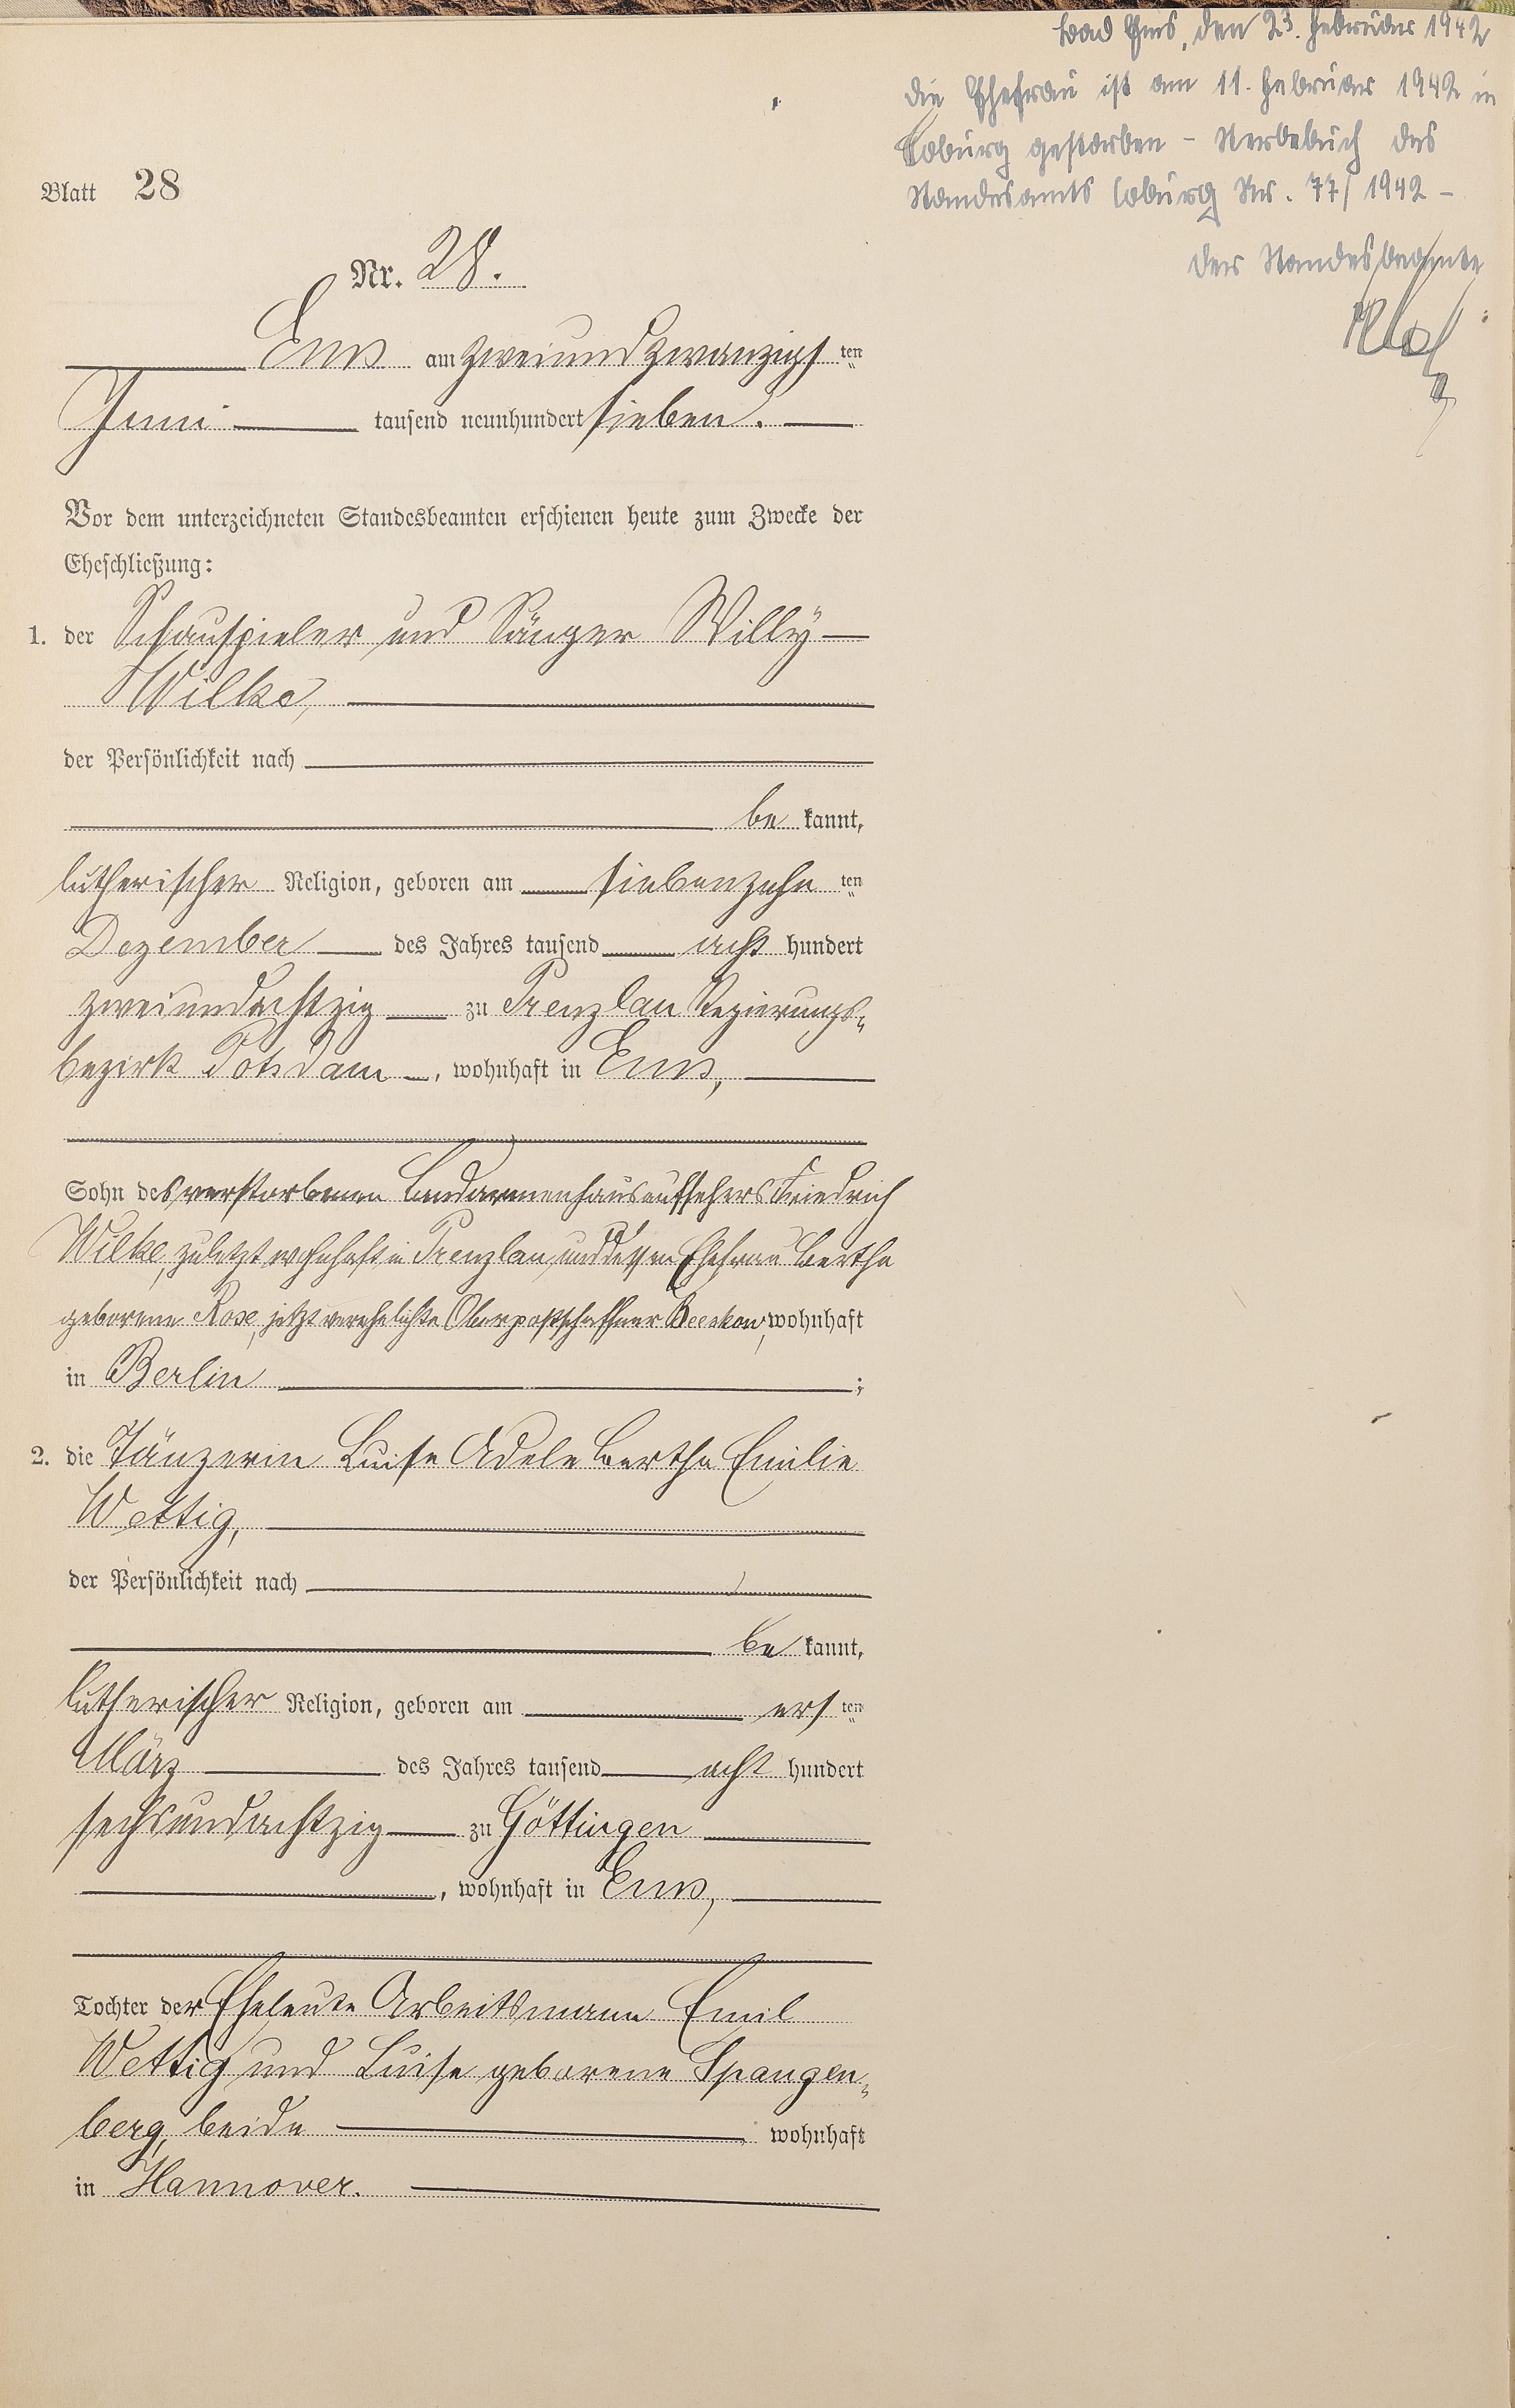 Bad Ems, den 23. Februar 1942
die Ehefrau ist am 11. Februar 1942 in
Coburg gestorben - Sterbebuch des
Standesamts Coburg Nr. 77/1942 -
Der Standesbeamte
Blatt 28
Nr. 28.
Ems am zweiundzwanzigsten
Juni tausend neunhundert sieben.
Vor dem unterzeichneten Standesbeamten erschienen heute zum Zwecke der
Eheschließung:
1. der Schauspieler und Sänger Willy
Wilke,
der Persönlichkeit nach
bekannt,
lutherischer Religion, geboren am siebenzehnten
Dezember des Jahres tausend acht hundert
zweiundachtzig zu Prenzlau Regierungs-
bezirk Potsdam, wohnhaft in Ems,
Sohn des verstorbenen Landarmenhausaufsehers Friedrich
Wilke, zuletzt wohnhaft in Prenzlau, und dessen Ehefrau Bertha
geborene Rose, jetzt verehelichte Oberpostschaffner Beeskow, wohnhaft
in Berlin;
2. die Tänzerin Luise Adele Bertha Emilie
Wettig,
der Persönlichkeit nach
bekannt,
lutherischer Religion, geboren am ersten
März des Jahres tausend acht hundert
sechsundachtzig zu Göttingen
, wohnhaft in Ems,
Tochter der Eheleute Arbeitsmann Emil
Wettig und Luise geborene Spangen-
berg, beide wohnhaft
in Hannover.